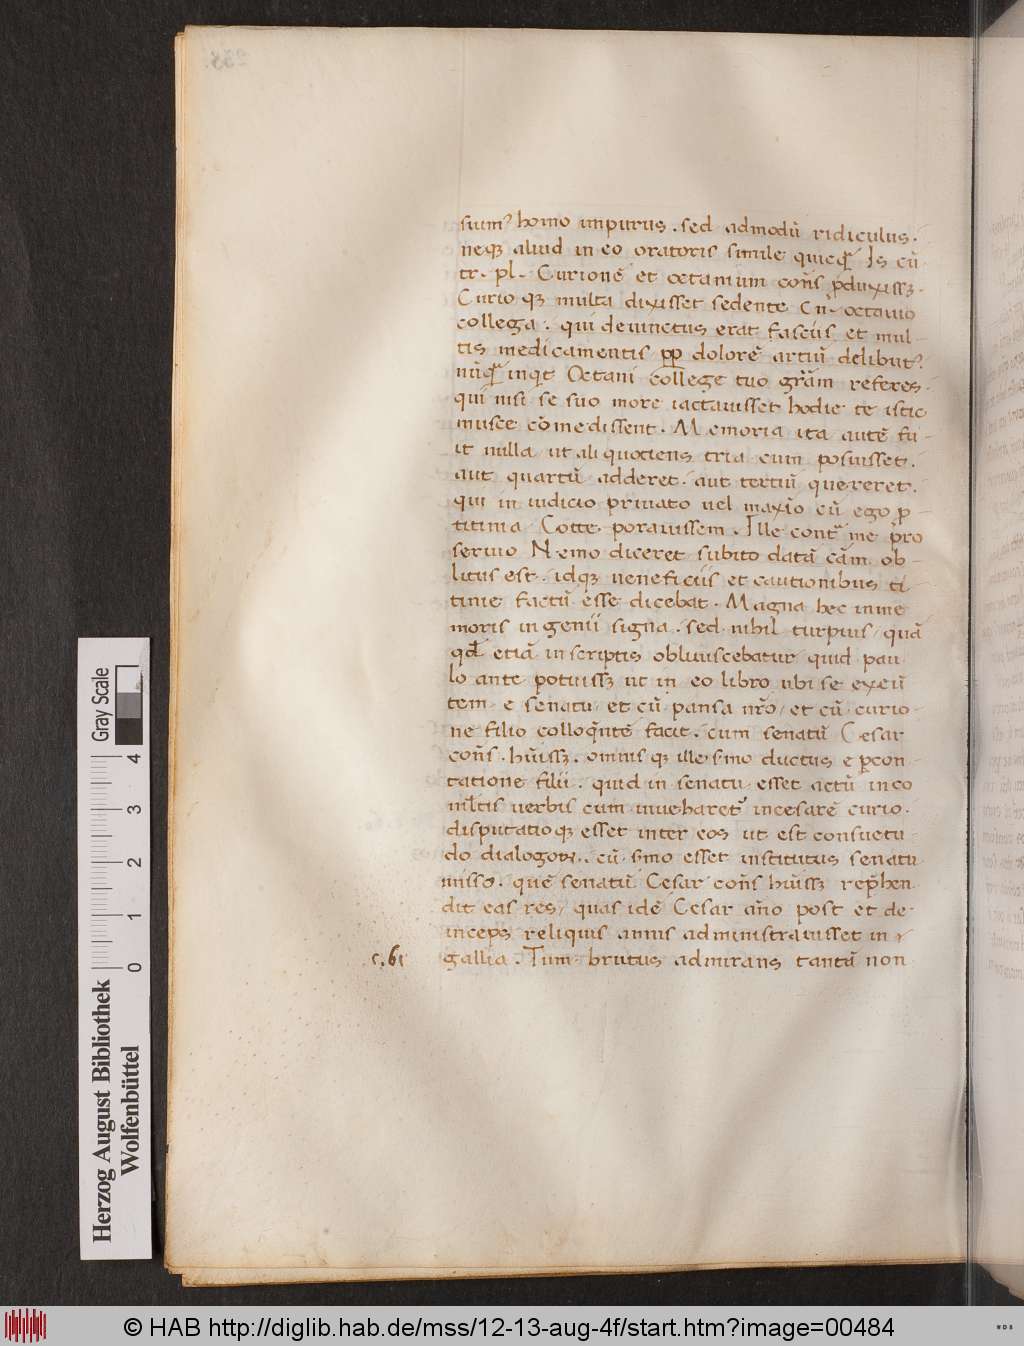 siumꝰ homo impurus. sed admodū ridiculus.
neqꝫ aliud in eo oratoris simile quicqͣ. Is cū
tr. pl. Curionē et octauium cōns ꝓduxissꝫ.
Curio qꝫ multa dixisset sedente Cn. octauio
collega. qui deuinctus erat fasciis et mul-
tis medicamentis ꝓp dolorē artuū delibutꝰ
nūqͣ inqit Octaui college tuo grām referes.
qui nisi se suo more iactauisset hodie te istic
musce cōmedissent. Memoria ita autē fu-
it nulla ut aliquotiens tria cum posuisset.
aut quartū adderet. aut tertiū quereret.
qui in iudicio priuato uel maxīo cū ego ꝓ
titinia Cotte porauissem. Ille contͣ me ꝓro
seruio Nemo diceret subito datā cām ob-
litus est. idqꝫ ueneficiis et cautionibus ti
tinie factū esse dicebat. Magna hec inme
moris ingenii signa. sed nihil turpius quā
qd̄ etiā in scriptis obliuiscebatur quid pau
lo ante potuissꝫ ut in eo libro ubi se exeū
tem e senatu et cū pansa nr̄o et cū curio-
ne filio colloq̄ntē facit. cum senatū Cesar
cōns. hūissꝫ. omnis qꝫ ille sr̄mo ductus e ꝑcon
tatione filii. quid in senatu esset actū in eo
ml̄tis uerbis cum inueharetꝰ incesarē curio.
disputatioqꝫ esset inter eos ut est consuetu
do dialogoꝝ. cū sr̄mo esset institutus senatu
misso. quē senatū Cesar cōns hūissꝫ rep̄hen
dit eas res, quas idē Cesar an̄o post et de-
inceps reliquis annis administrauisset in
c. 61 gallia. Tum brutus admirans tantū non
Gray Scale
0 1 2 3 4
Herzog August Bibliothek
Wolfenbüttel
© HAB http://diglib.hab.de/mss/12-13-aug-4f/start.htm?image=00484